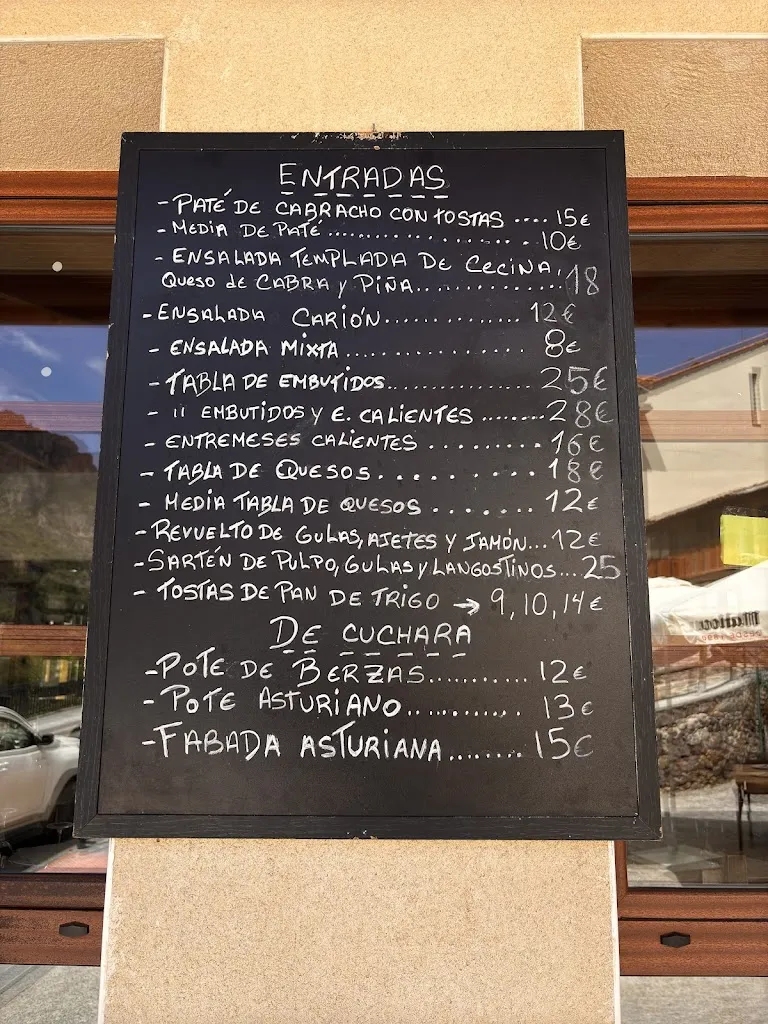 ENTRADAS
- PATÉ DE CABRACHO CON TOSTAS .... 15€
- MEDIA DE PATÉ .................... 10€
- ENSALADA TEMPLADA DE CECINA,
QUESO DE CABRA Y PIÑA.............. 18
- ENSALADA CARIÓN.............. 12€
- ENSALADA MIXTA ................. 8€
- TABLA DE EMBUTIDOS................ 25€
- " EMBUTIDOS Y E. CALIENTES ........28€
- ENTREMESES CALIENTES .......... 16€
- TABLA DE QUESOS.......... 18€
- MEDIA TABLA DE QUESOS ....... 12€
- REVUELTO DE GULAS, AJETES Y JAMÓN...12€
- SARTÉN DE PULPO, GULAS Y LANGOSTINOS...25
- TOSTAS DE PAN DE TRIGO → 9, 10, 14€
DE CUCHARA
- POTE DE BERZAS........... 12€
- POTE ASTURIANO............ 13€
- FABADA ASTURIANA........ 15€